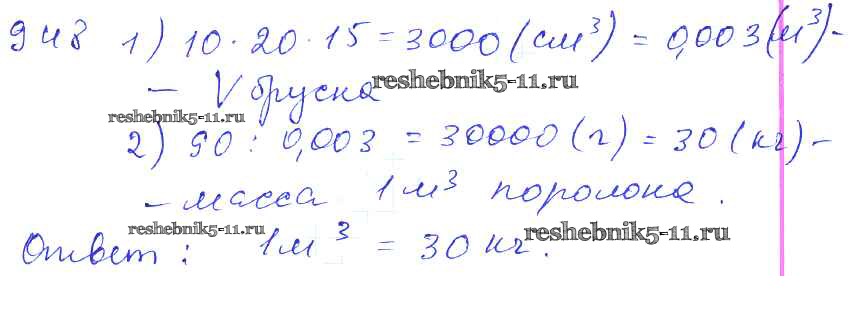 948 1) 10 · 20 · 15 = 3000 (см³) = 0,003 (м³) -
- V бруска
reshebnik5-11.ru
reshebnik5-11.ru
2) 90 : 0,003 = 30000 (г) = 30 (кг) -
- масса 1 м³ поролона.
reshebnik5-11.ru
reshebnik5-11.ru
Ответ: 1 м³ = 30 кг.